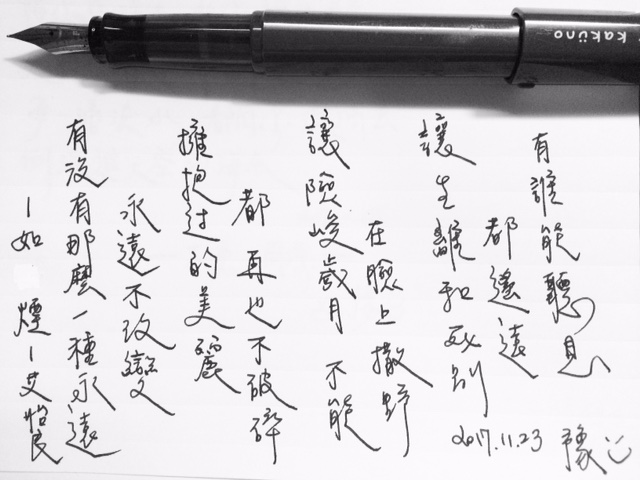 kaküno
—如煙—艾怡良
有沒有那麼一種永遠
永遠不改變
擁抱过的美麗
都再也不破碎
讓險峻歲月不能
在臉上撒野
讓生離和死別
都遙遠
有誰能聽見
2017.11.23 豫